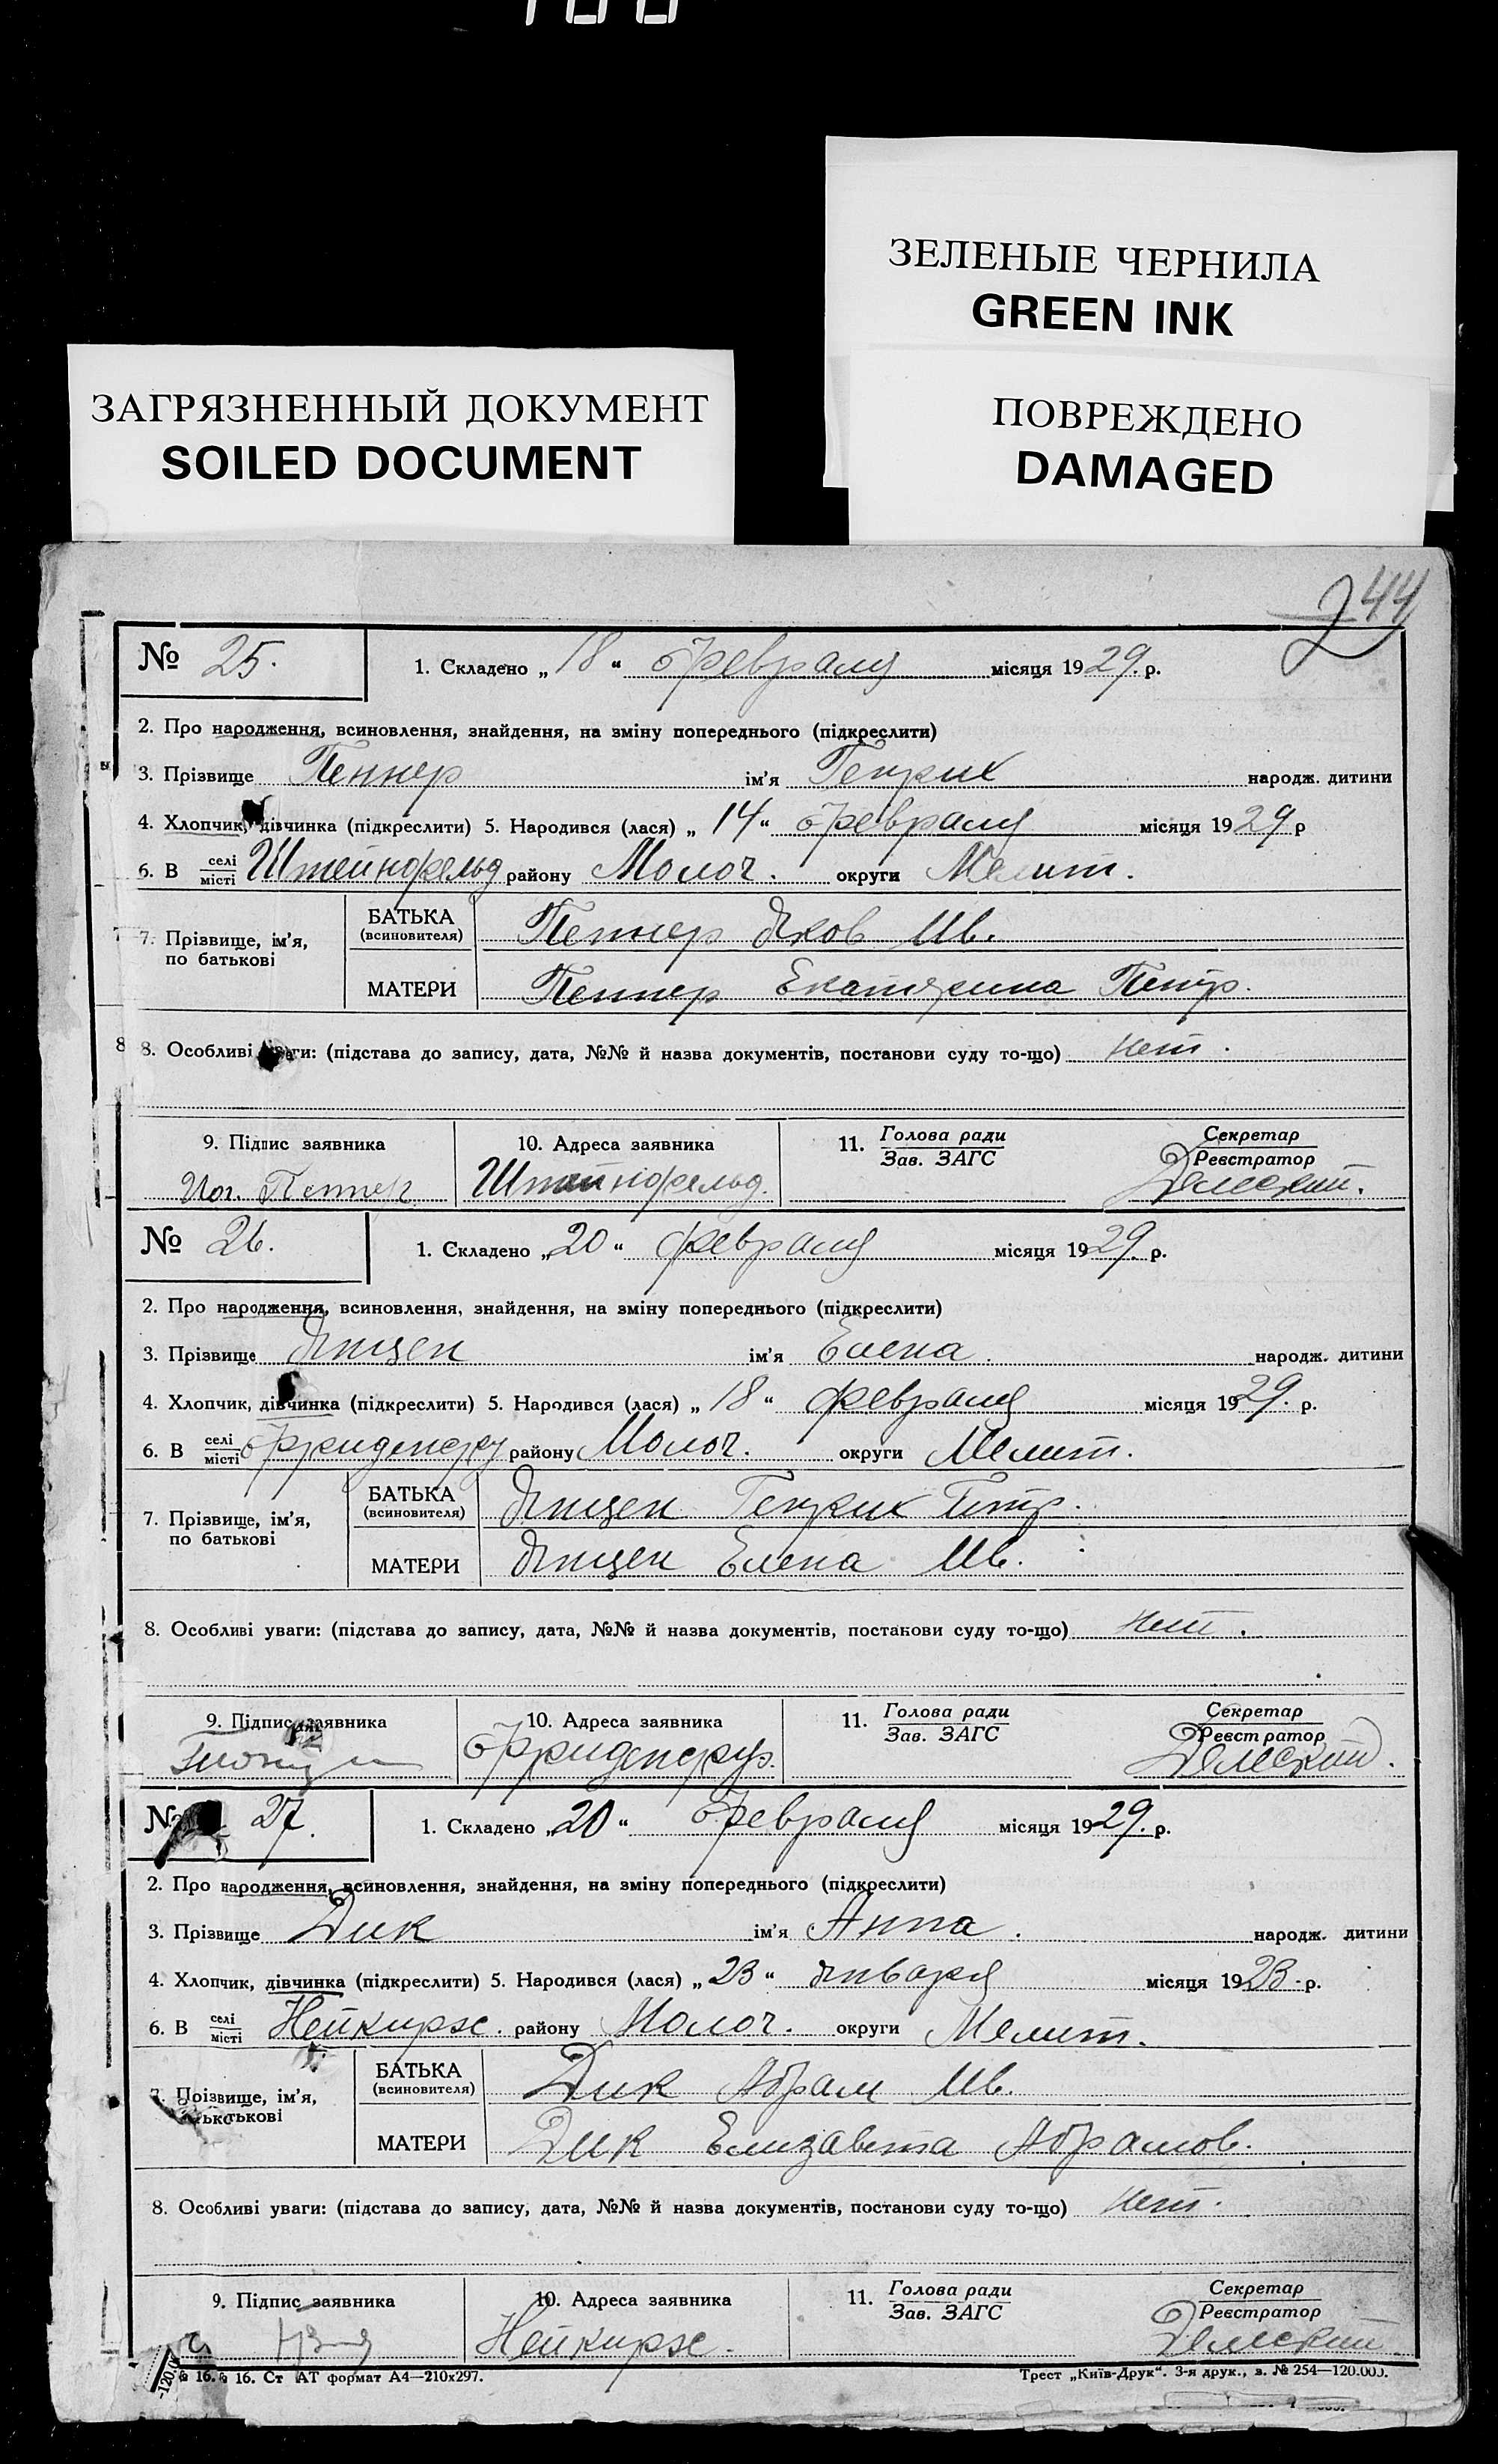 ЗЕЛЕНЫЕ ЧЕРНИЛА
GREEN INK
ЗАГРЯЗНЕННЫЙ ДОКУМЕНТ
SOILED DOCUMENT
ПОВРЕЖДЕНО
DAMAGED
244
№ 25. 1. Складено „18“ февраля місяця 1929. р.
2. Про народження, всиновлення, знайдення, на зміну попереднього (підкреслити)
3. Прізвище Пеннер ім'я Генрих народж. дитини
4. Хлопчик, дівчинка (підкреслити) 5. Народився (лася) „14“ февраля місяця 1929 р
6. В селі місті Штейнфельд району Молоч. округи Мелит.
7. Прізвище, ім'я, по батькові
БАТЬКА (всиновителя) Пеннер Яков Ив.
МАТЕРИ Пеннер Екатерина Петр.
8. Особливі уваги: (підстава до запису, дата, №№ й назва документів, постанови суду то-що) нет.
9. Підпис заявника 10. Адреса заявника 11. Голова ради Зав. ЗАГС Секретар Реєстратор
Пеннер Штейнфельд.
№ 26. 1. Складено „20“ февраля місяця 1929. р.
2. Про народження, всиновлення, знайдення, на зміну попереднього (підкреслити)
3. Прізвище Янцен ім'я Елена. народж. дитини
4. Хлопчик, дівчинка (підкреслити) 5. Народився (лася) „18“ февраля місяця 1929. р.
6. В селі місті району Молоч. округи Мелит.
7. Прізвище, ім'я, по батькові
БАТЬКА (всиновителя) Янцен Генрих Петр.
МАТЕРИ Янцен Елена Ив.
8. Особливі уваги: (підстава до запису, дата, №№ й назва документів, постанови суду то-що) нет.
9. Підпис заявника 10. Адреса заявника 11. Голова ради Зав. ЗАГС Секретар Реєстратор
№ 27. 1. Складено „20“ февраля місяця 1929. р.
2. Про народження, всиновлення, знайдення, на зміну попереднього (підкреслити)
3. Прізвище Дик ім'я Анна. народж. дитини
4. Хлопчик, дівчинка (підкреслити) 5. Народився (лася) „23“ января місяця 1923. р.
6. В селі місті Нейкирх. району Молоч. округи Мелит.
7. Прізвище, ім'я,
БАТЬКА (всиновителя) Дик Абрам Ив.
МАТЕРИ Дик Елизавета Абрамов.
8. Особливі уваги: (підстава до запису, дата, №№ й назва документів, постанови суду то-що) нет.
9. Підпис заявника 10. Адреса заявника 11. Голова ради Зав. ЗАГС Секретар Реєстратор
Нейкирх.
16. Ст АТ формат А4—210х297. Трест „Київ-Друк“. 3-я друк., з. № 254—120.000.